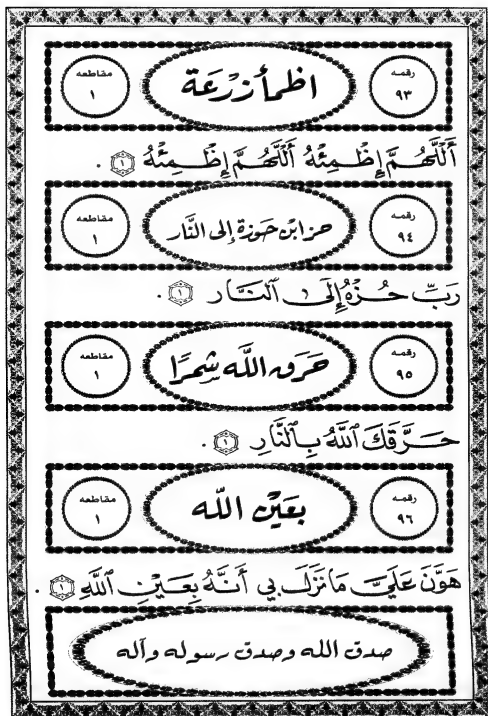 رقمه ٩٣ اظمأ زرعة مقاطعه ١
أَللَّهُمَّ إِظْمِئْهُ أَللَّهُمَّ إِظْمِئْهُ ١ .
رقمه ٩٤ حز ابن حوزة إلى النار مقاطعه ١
رَبِّ حُزْهُ إِلَى ٱلنَّارِ ١ .
رقمه ٩٥ حرق الله شمرًا مقاطعه ١
حَرَّقَكَ ٱللَّهُ بِٱلنَّارِ ١ .
رقمه ٩٦ بعين الله مقاطعه ١
هَوَّنَ عَلَيَّ مَا نَزَلَ بِي أَنَّهُ بِعَيْنِ ٱللَّهِ ١ .
صدق الله وصدق رسوله وآله